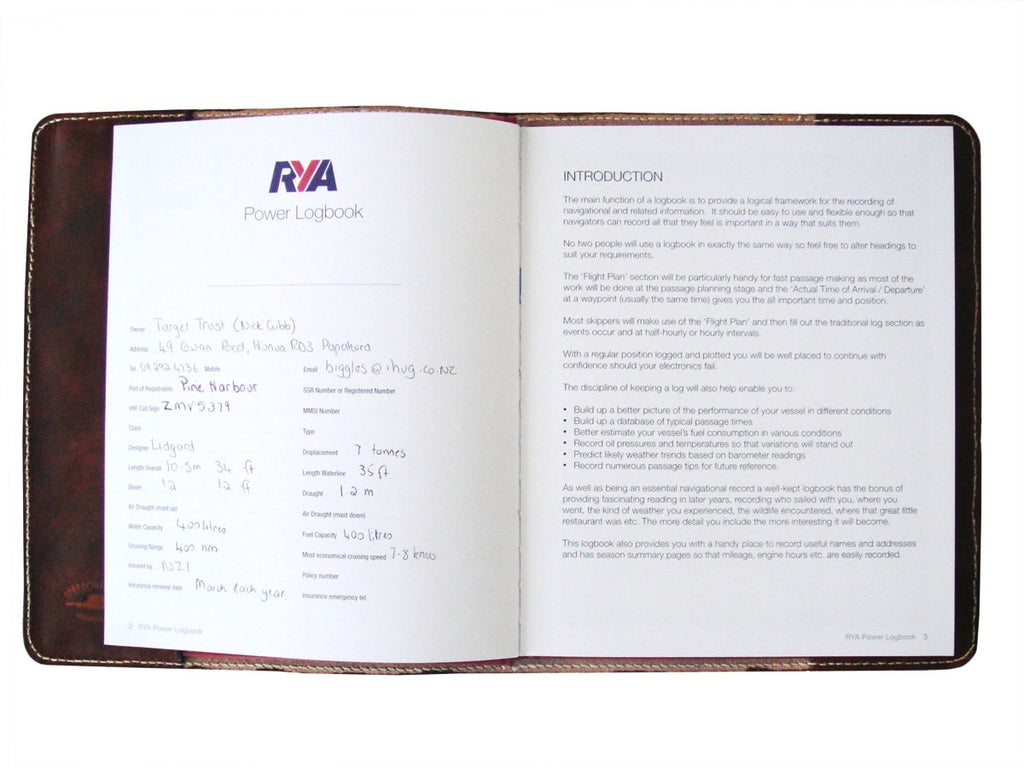 RYA
Power Logbook
Owner Target Trust (Nick Gibb)
Address 49 Gwan Road, Hunua RD3 Papakura
Tel 092924736 Mobile
Email biggles@ihug.co.nz
Port of Registration Pine Harbour
SSR Number or Registered Number
VHF Call Sign ZMV5379
MMSI Number
Class
Type
Designer Lidgard
Displacement 7 tonnes
Length Overall 10.5m 34 ft
Length Waterline 35 ft
Beam 12 12 ft
Draught 1.2 m
Air Draught (mast up)
Air Draught (mast down)
Water Capacity 400 litres
Fuel Capacity 400 litres
Cruising Range 400 nm
Most economical cruising speed 7-8 knots
Insured by NZI
Policy number
Insurance renewal date March each year
Insurance emergency tel
2 RYA Power Logbook
INTRODUCTION
The main function of a logbook is to provide a logical framework for the recording of
navigational and related information. It should be easy to use and flexible enough so that
navigators can record all that they feel is important in a way that suits them.
No two people will use a logbook in exactly the same way so feel free to alter headings to
suit your requirements.
The 'Flight Plan' section will be particularly handy for fast passage making as most of the
work will be done at the passage planning stage and the 'Actual Time of Arrival / Departure'
at a waypoint (usually the same time) gives you the all important time and position.
Most skippers will make use of the 'Flight Plan' and then fill out the traditional log section as
events occur and at half-hourly or hourly intervals.
With a regular position logged and plotted you will be well placed to continue with
confidence should your electronics fail.
The discipline of keeping a log will also help enable you to:
• Build up a better picture of the performance of your vessel in different conditions
• Build up a database of typical passage times
• Better estimate your vessel's fuel consumption in various conditions
• Record oil pressures and temperatures so that variations will stand out
• Predict likely weather trends based on barometer readings
• Record numerous passage tips for future reference.
As well as being an essential navigational record a well-kept logbook has the bonus of
providing fascinating reading in later years, recording who sailed with you, where you
went, the kind of weather you experienced, the wildlife encountered, where that great little
restaurant was etc. The more detail you include the more interesting it will become.
This logbook also provides you with a handy place to record useful names and addresses
and has season summary pages so that mileage, engine hours etc. are easily recorded.
RYA Power Logbook 3